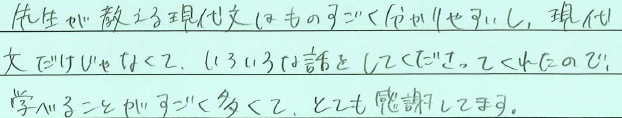 先生が教える現代文はものすごく分かりやすいし、現代
文だけじゃなくて、いろいろな話をしてくださってくれたので、
学べることがすごく多くて、とても感謝してます。